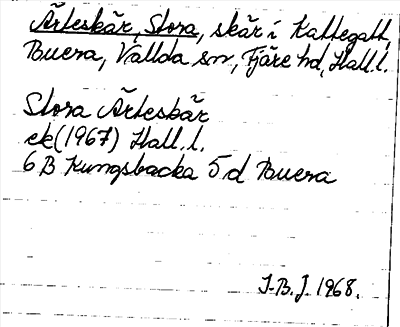 Ärteskär, Stora, skär i Kattegatt,
Buera, Vallda sn, Fjäre hd, Hall.l.
Stora Ärteskär
ek(1967) Hall.l.
6 B Kungsbacka 5 d Buera
J.B.J. 1968.